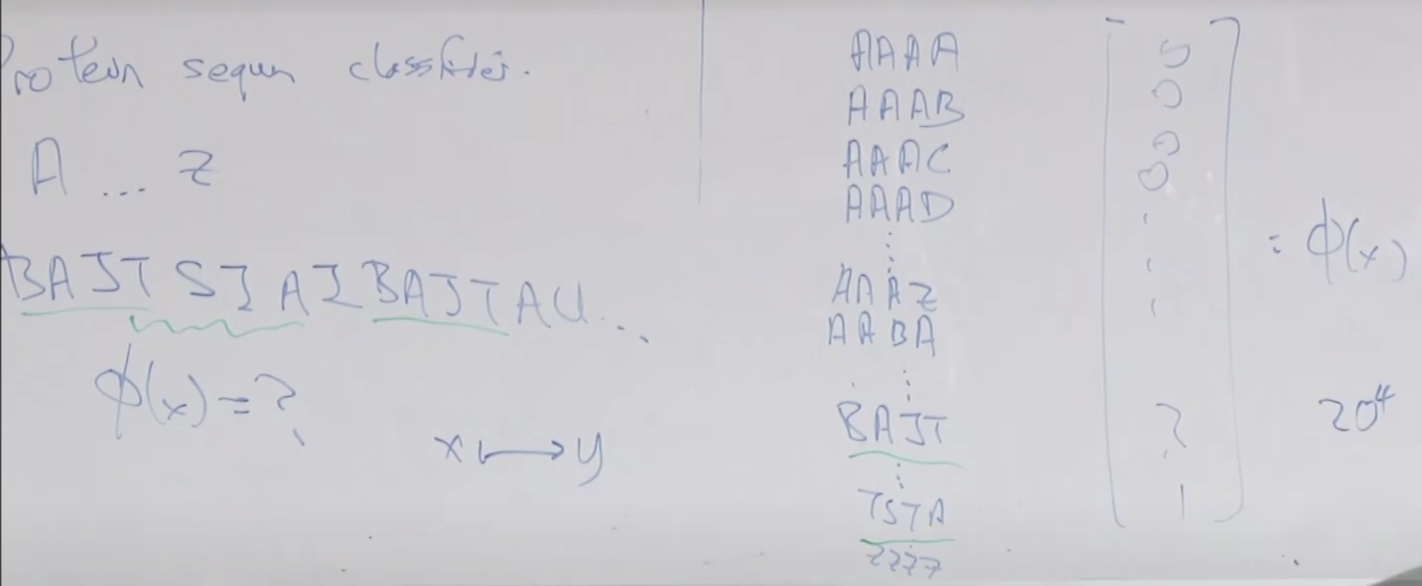 Protein sequn classifier.
A ... Z
BAJTSTAIBAJTAU...
ϕ(x) = ?
x ↦ y
AAAA
AAAB
AAAC
AAAD
⋮
AAAZ
AABA
⋮
BAJT
⋮
TSTA
ZZZZ
0
0
0
0
⋮
2
⋮
1
= ϕ(x)
20⁴